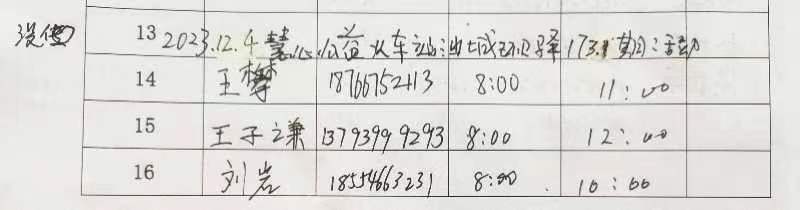 13 2023.12.4 慧心公益火车站:出城环保驿 173.1 期:活动
14 王 18766752413 8:00 11:00
15 王子谦 13793999293 8:00 12:00
16 刘岩 18554663231 8:00 10:00